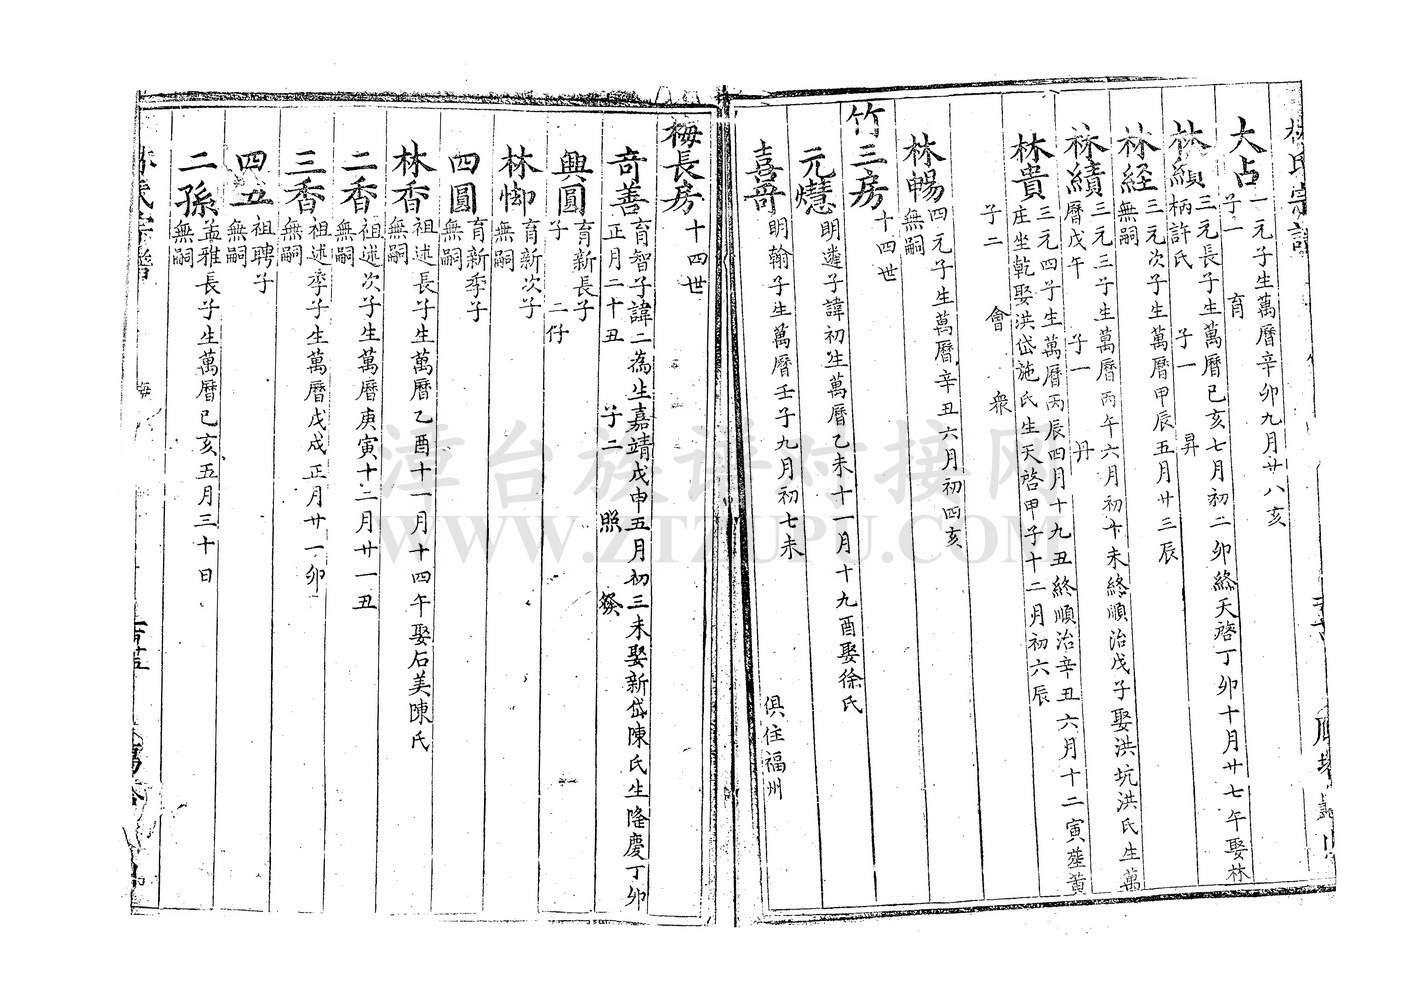 林氏宗譜
大占 一元子生萬曆辛卯九月廿八亥
子一 育
林縯 三元長子生萬曆已亥七月初二卯終天啓丁卯十月廿七午娶林
柄許氏 子一 昇
林経 三元次子生萬曆甲辰五月廿三辰
無嗣
林續 三元三子生萬曆丙午六月初十未終順治戊子娶洪坑洪氏生萬
曆戊午 子一 丹
林貴 三元四子生萬曆丙辰四月十九丑終順治辛丑六月十二寅塟黃
庄坐乾娶洪岱施氏生天啓甲子十二月初六辰
子二 會 衆
林暢 四元子生萬曆辛丑六月初四亥
無嗣
竹三房 十四世
元㷄 明遴子諱初生萬曆乙未十一月十九酉娶徐氏
喜哥 明翰子生萬曆壬子九月初七未
俱住福州
梅長房 十四世
奇善 育智子諱二為生嘉靖戊申五月初三未娶新岱陳氏生隆慶丁卯
正月二十丑 子二 照 癸
興圓 育新長子
子 二仔
林㣫 育新次子
無嗣
四圓 育新季子
無嗣
林香 祖述長子生萬曆乙酉十一月十四午娶石美陳氏
無嗣
二香 祖述次子生萬曆庚寅十二月廿一丑
無嗣
三香 祖述季子生萬曆戊戌正月廿一卯
無嗣
四丑 祖聘子
無嗣
二孫 孟雅長子生萬曆已亥五月三十日
無嗣
林氏宗譜 梅